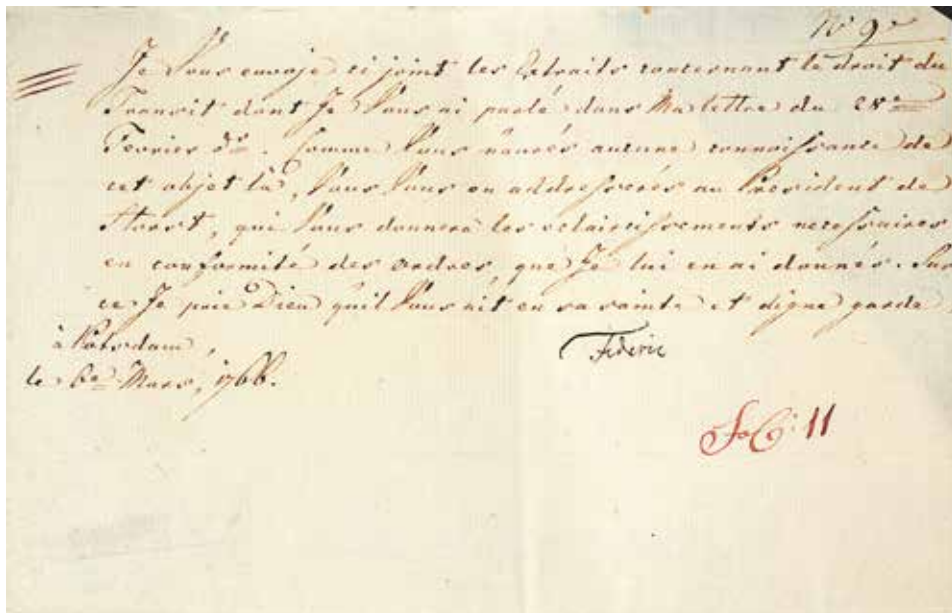 N.º 9.
Je Vous envoje ci joint les Extraits concernant le droit du
Transit dont Je Vous ai parlé dans Ma lettre du 28.
Fevrier d. Comme Vous n'aurés aucune connoissance de
cet objet là, Vous Vous en addresserés au President de
Horst, qui Vous donnera les eclaircissements necessaires
en conformité des ordres, que Je lui en ai donnés. Sur
ce Je prie Dieu qu'il Vous ait en sa sainte et digne garde
à Potsdam,
le 6e Mars, 1766.
Federic
11